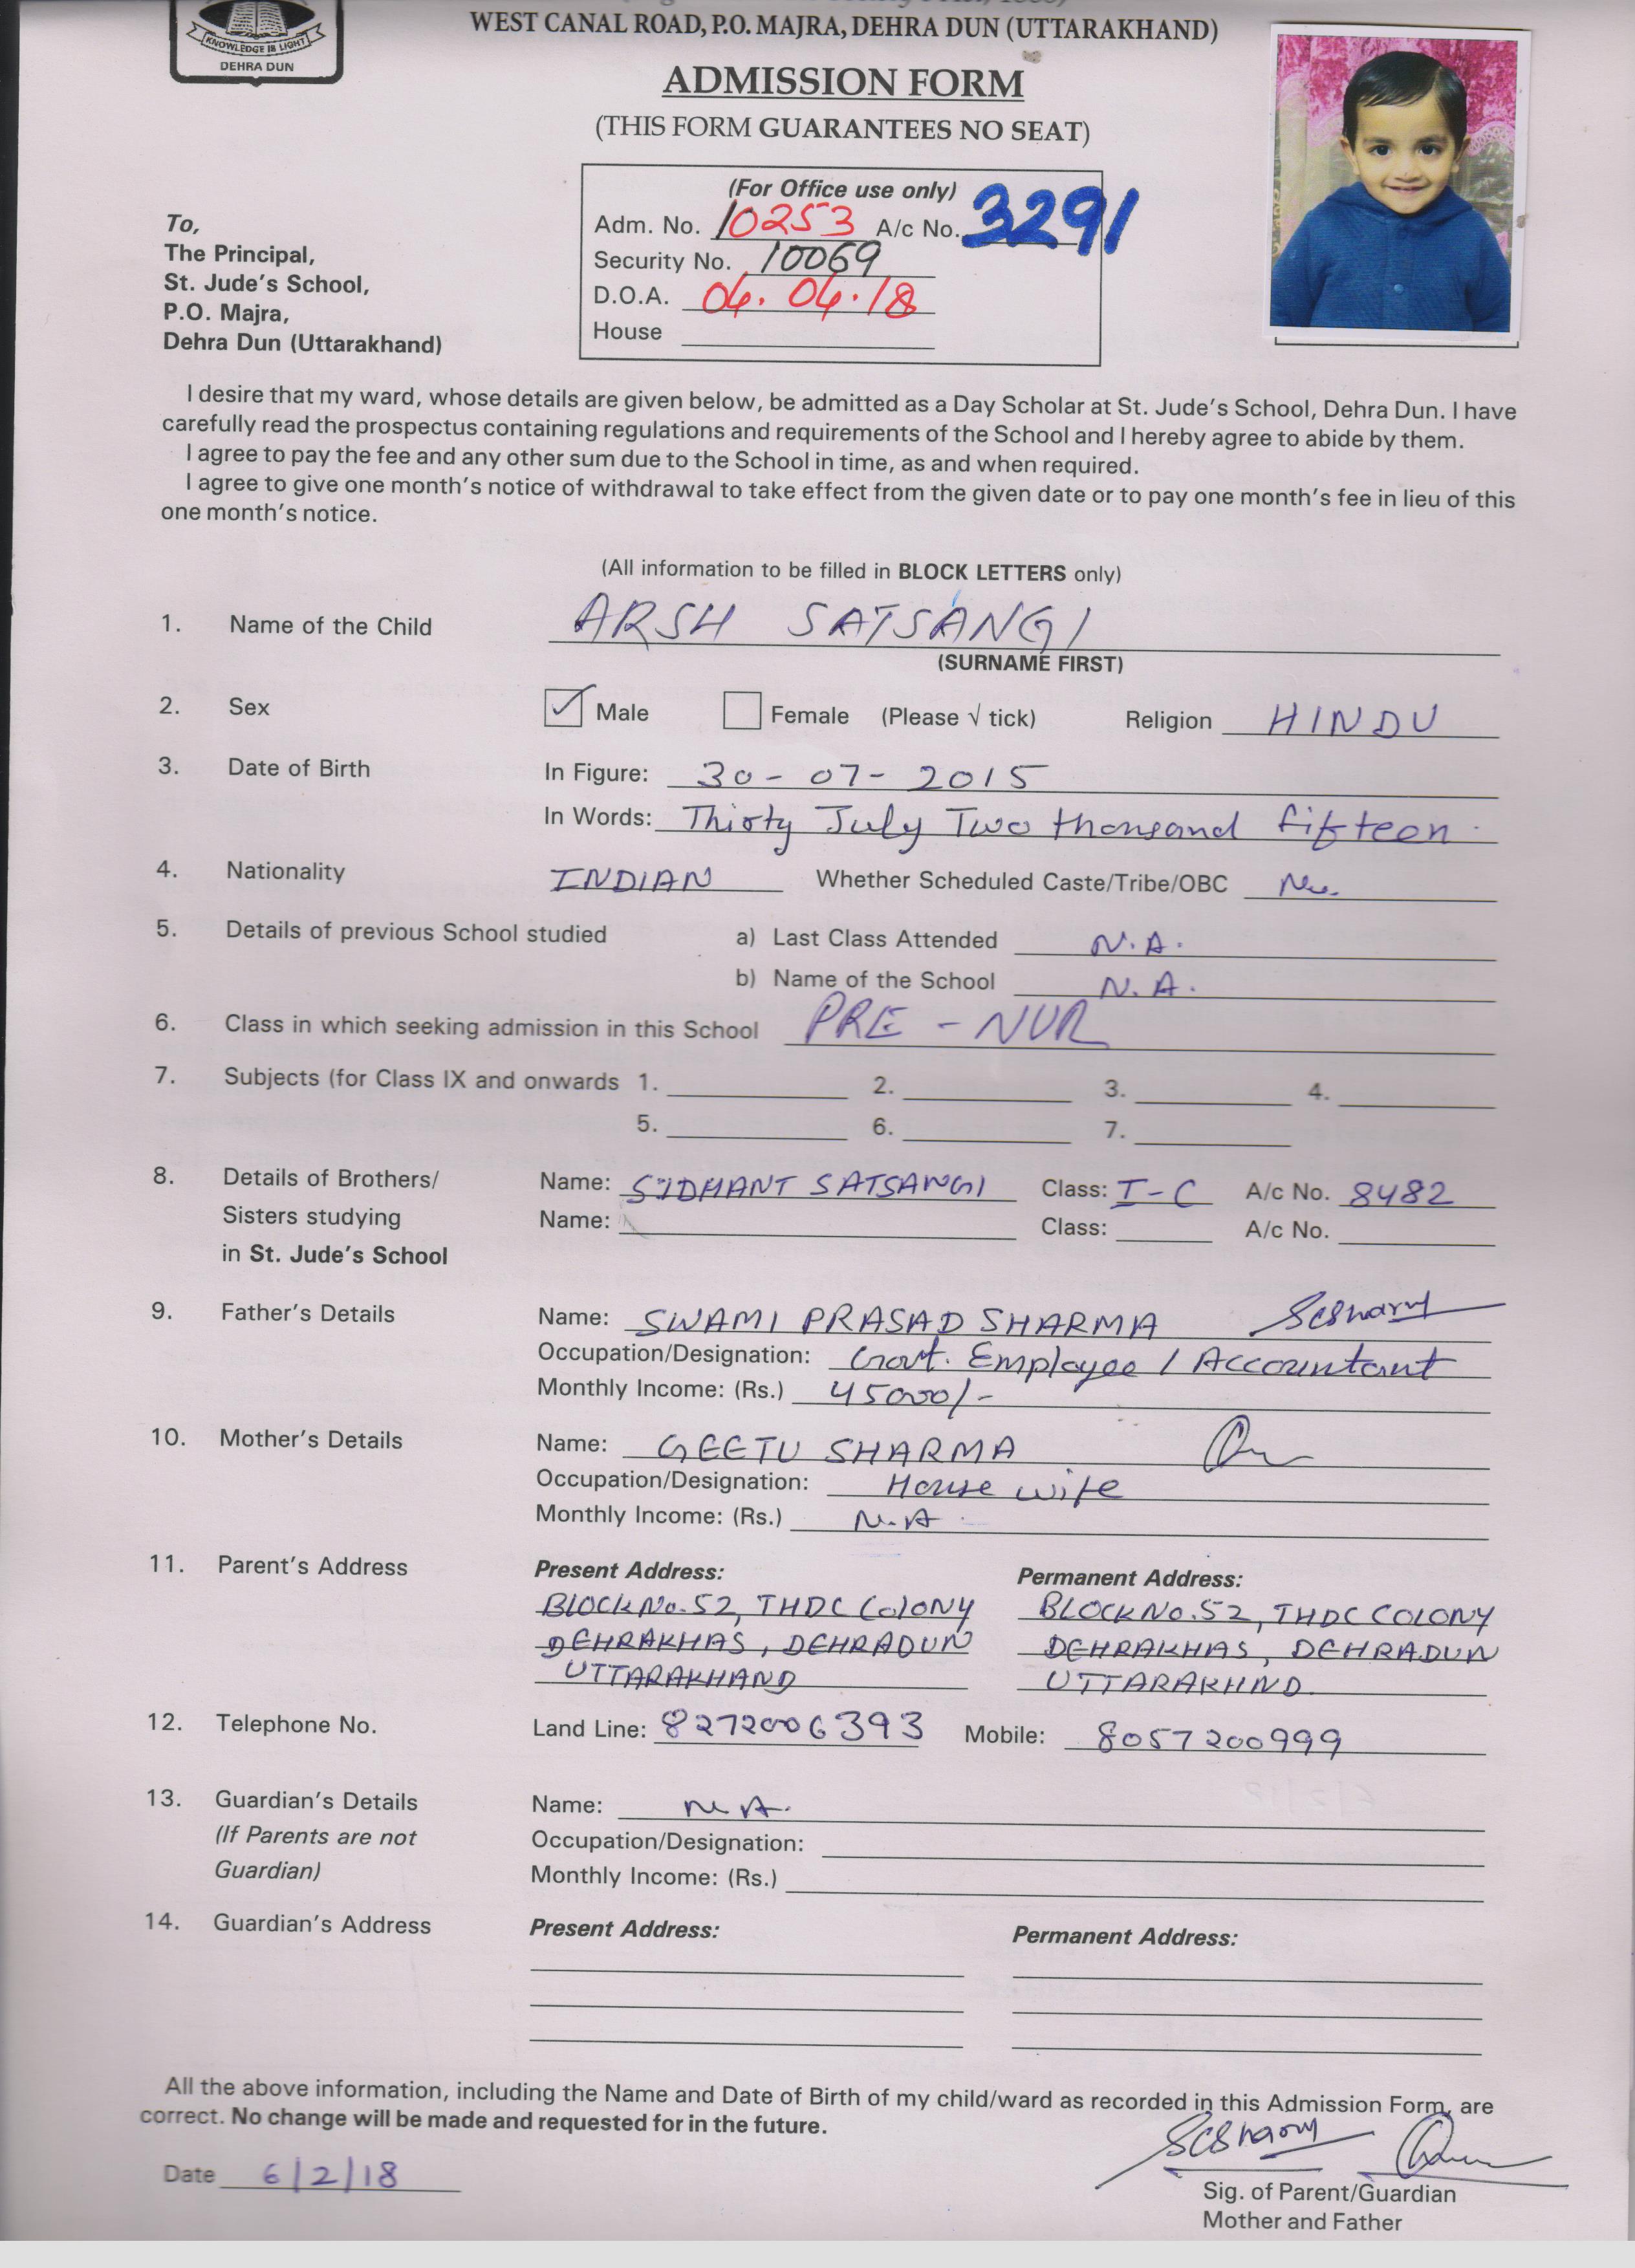 KNOWLEDGE IS LIGHT
DEHRA DUN
WEST CANAL ROAD, P.O. MAJRA, DEHRA DUN (UTTARAKHAND)
ADMISSION FORM
(THIS FORM GUARANTEES NO SEAT)
(For Office use only)
Adm. No. 10253 A/c No. 3291
Security No. 10069
D.O.A. 04.04.18
House
To,
The Principal,
St. Jude's School,
P.O. Majra,
Dehra Dun (Uttarakhand)
I desire that my ward, whose details are given below, be admitted as a Day Scholar at St. Jude's School, Dehra Dun. I have
carefully read the prospectus containing regulations and requirements of the School and I hereby agree to abide by them.
I agree to pay the fee and any other sum due to the School in time, as and when required.
I agree to give one month's notice of withdrawal to take effect from the given date or to pay one month's fee in lieu of this
one month's notice.
(All information to be filled in BLOCK LETTERS only)
1. Name of the Child ARSH SATSANGI
(SURNAME FIRST)
2. Sex Male Female (Please √ tick) Religion HINDU
3. Date of Birth In Figure: 30-07-2015
In Words: Thirty July Two thousand fifteen
4. Nationality INDIAN Whether Scheduled Caste/Tribe/OBC No.
5. Details of previous School studied a) Last Class Attended N.A.
b) Name of the School N.A.
6. Class in which seeking admission in this School PRE-NUR
7. Subjects (for Class IX and onwards 1. 2. 3. 4.
5. 6. 7.
8. Details of Brothers/ Name: SIDHANT SATSANGI Class: I-C A/c No. 8482
Sisters studying Name: Class: A/c No.
in St. Jude's School
9. Father's Details Name: SWAMI PRASAD SHARMA
Occupation/Designation: Govt. Employee / Accountant
Monthly Income: (Rs.) 45000/-
10. Mother's Details Name: GEETU SHARMA
Occupation/Designation: House wife
Monthly Income: (Rs.) N.A.
11. Parent's Address Present Address: Permanent Address:
BLOCK No. 52, THDC COLONY BLOCK NO. 52, THDC COLONY
DEHRAKHAS, DEHRADUN DEHRAKHAS, DEHRADUN
UTTARAKHAND UTTARAKHND
12. Telephone No. Land Line: 8272006393 Mobile: 8057200999
13. Guardian's Details Name: N.A.
(If Parents are not Occupation/Designation:
Guardian) Monthly Income: (Rs.)
14. Guardian's Address Present Address: Permanent Address:
All the above information, including the Name and Date of Birth of my child/ward as recorded in this Admission Form, are
correct. No change will be made and requested for in the future.
Date 6/2/18
Sig. of Parent/Guardian
Mother and Father